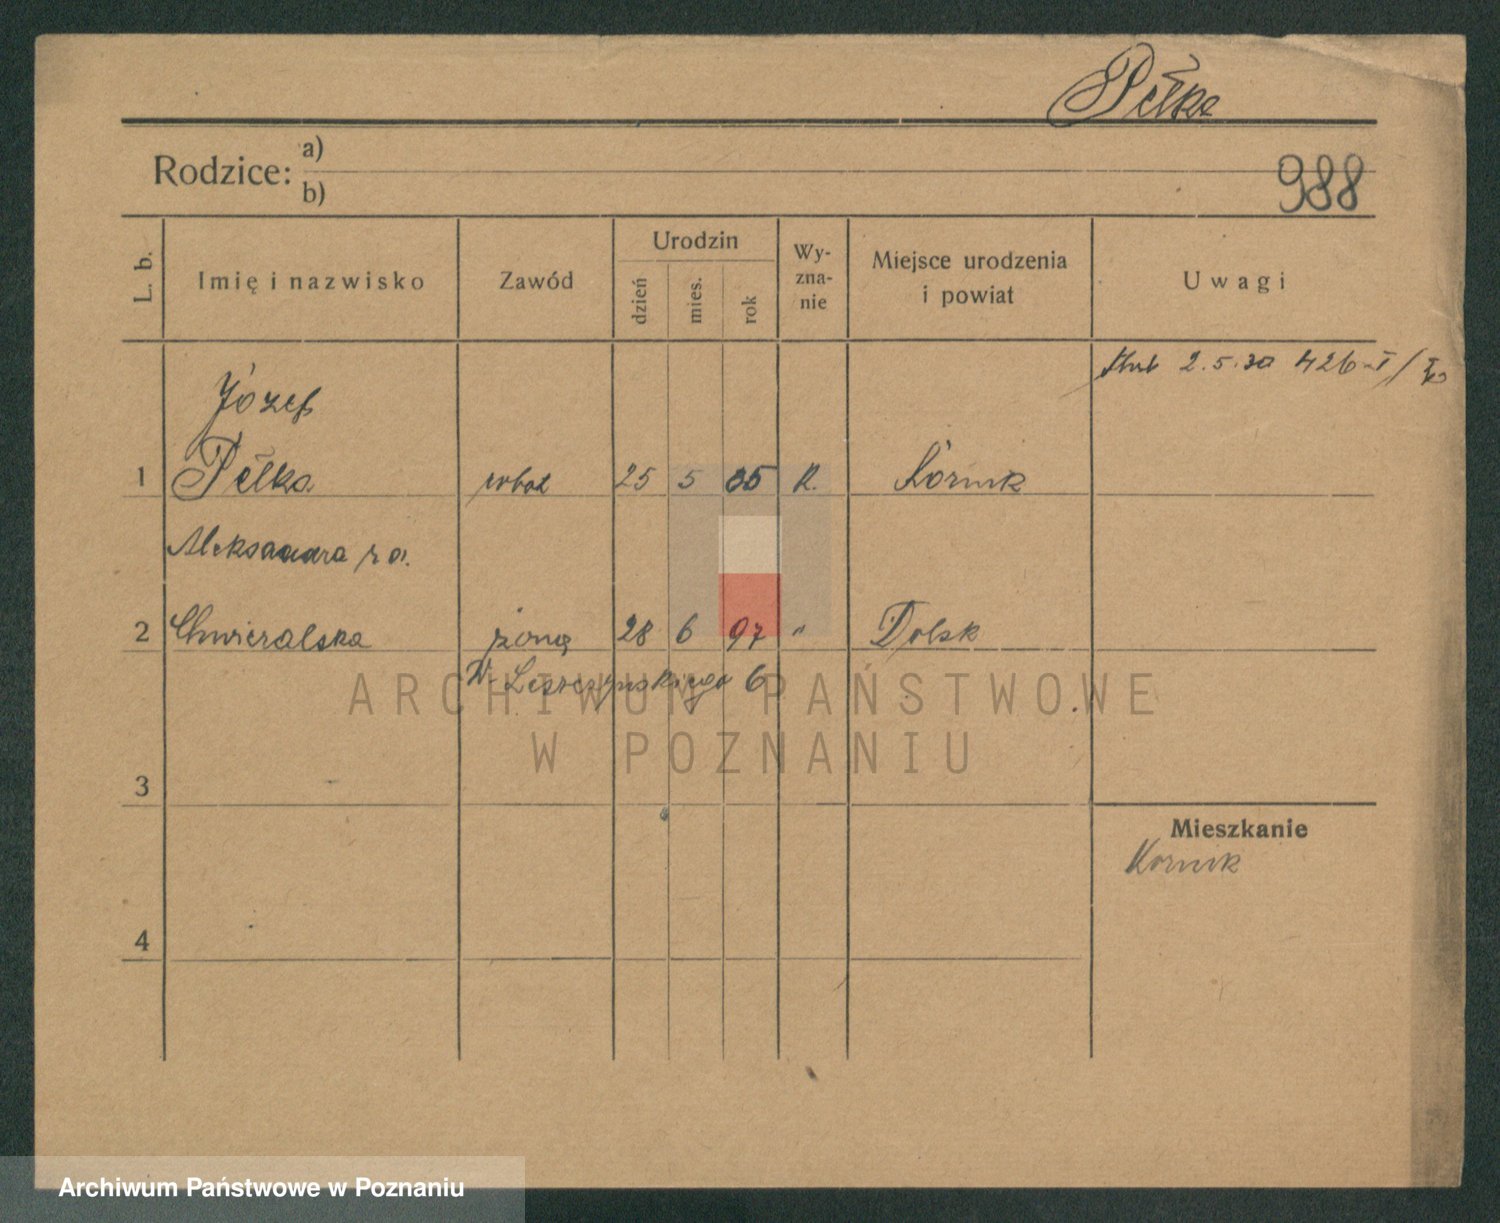 Pełka
Rodzice: a)
b)
988
L. b.
Imię i nazwisko
Zawód
Urodzin
dzień
mies.
rok
Wy-
zna-
nie
Miejsce urodzenia
i powiat
Uwagi
2.5.30 426
Józef
1 Pełka robot 25 5 K. Kórnik
Aleksandra
2 Chwieralska żona 28 6 97 " Dolsk
Leszczyńskiego 6
ARCHIWUM PAŃSTWOWE
W POZNANIU
3
Mieszkanie
Kornik
4
Archiwum Państwowe w Poznaniu